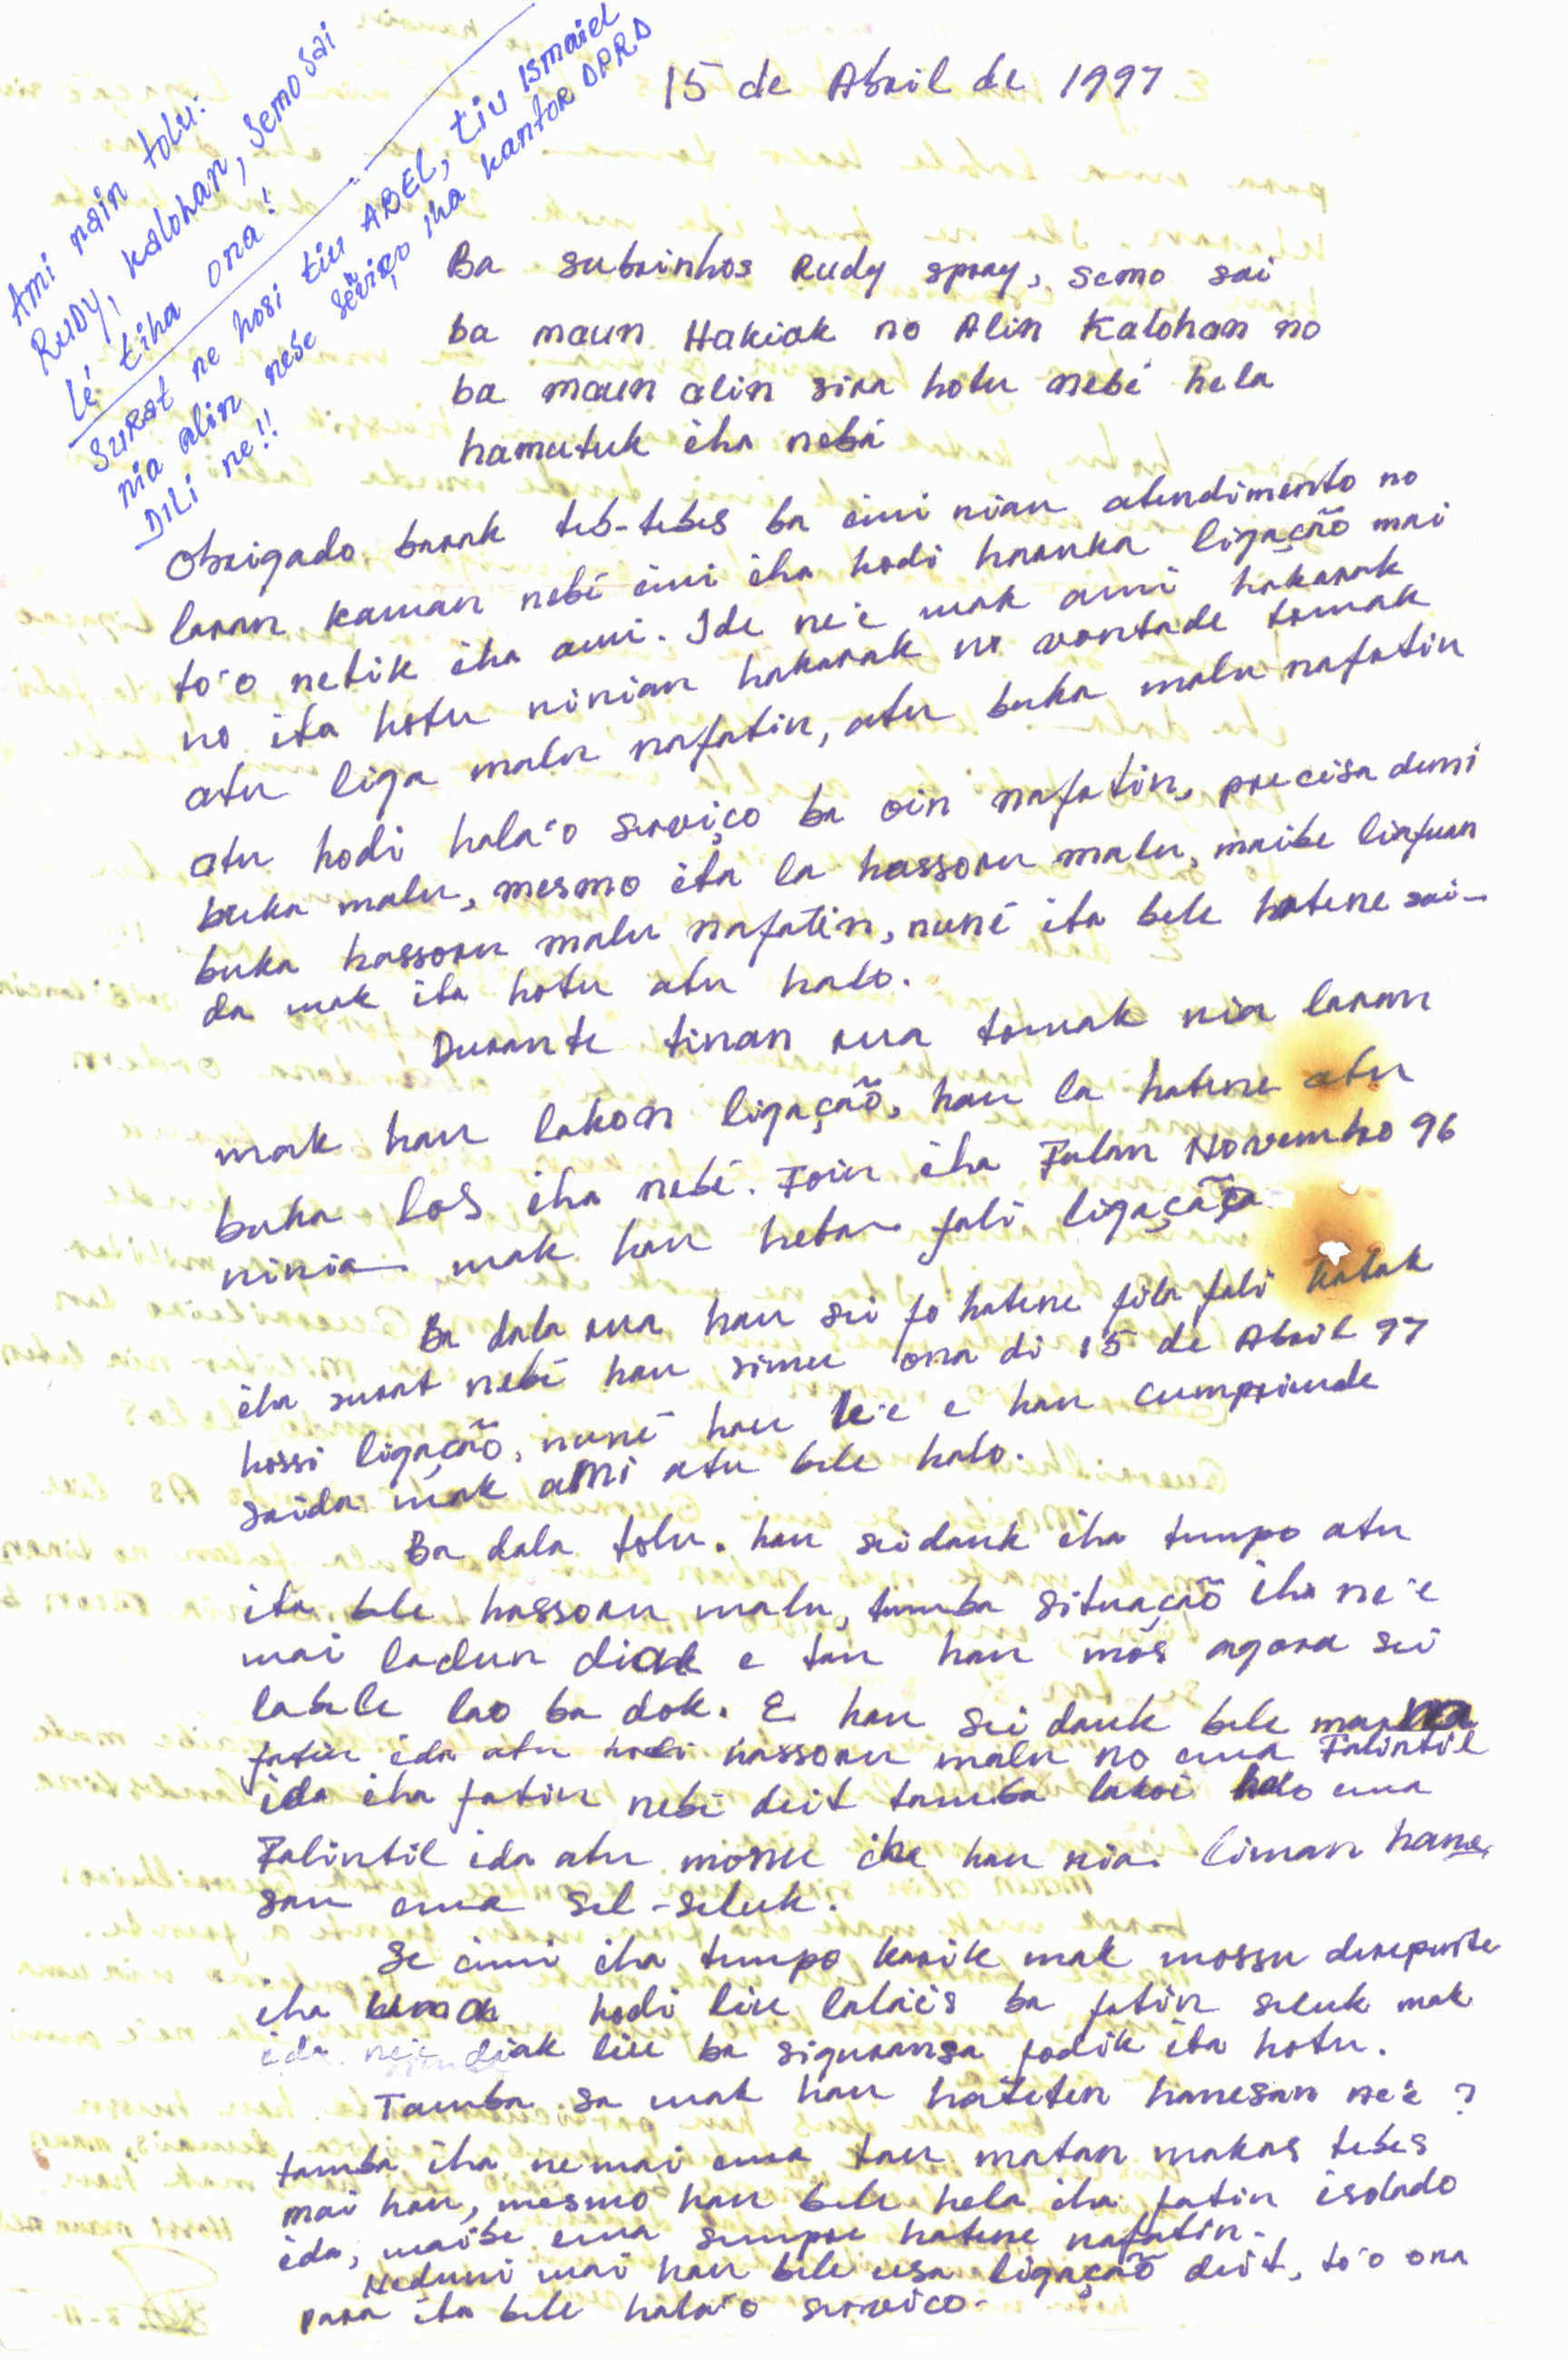 Ami nain tolu:
Rudy, Kalohan, Semo Sai
lé tiha ona!
Surat ne hosi tiu ABEL, tiu Ismaiel
nia alin nebe serviço iha kantor DPRD
Dili ne!!
15 de Abril de 1997
Ba subrinhos Rudy spray, semo sai
ba maun Hakiak no Alin Kalohan no
ba maun alin sira hotu nebé hela
hamutuk iha nebá
Obrigado barak teb-tebes ba imi nian atendimento no
laran kaman nebé imi iha hodi haruka ligação mai
to'o netik iha ami. Ide ne'e mak ami hakarak
no ita hotu ninian hakarak no vontade tomak
atu liga malu nafatin, atu buka malu nafatin
atu hodi hala'o serviço ba oin nafatin, precisa duni
buka malu, mesmo ita la hassoru malu, maibe liafuan
buka hassoru malu nafatin, nuné ita bele hatene sai-
da mak ita hotu atu halo.
Durante tinan rua tomak nia laran
mak hau lakon ligação, hau la hatene atu
buka los iha nebé. Foin iha Fulan Novembro 96
ninia mak hau hetan fali ligação
Ba dala rua hau sei fo hatene fila fali katak
iha surat nebé hau simu ona di 15 de Abril 97
hossi ligação, nuné hau le'e e hau cumpriende
saida mak ami atu bele halo.
Ba dala tolu. hau seidauk iha tempo atu
ita bele hassoru malu, tamba situação iha ne'e
mai ladun diak e tan hau mós agora sei
labele lao ba dok. E hau seidauk bele marka
fatin ida atu hodi hassoru malu no ema Falintil
ida iha fatin nebé deit tamba lakoi halo ema
Falintil ida atu monu iha hau nia liman hane-
san ema sel-seluk.
Se imi iha tempo karik mak mossu derepente
iha hodi liu lalais ba fatin seluk mak
ida ne'e diak liu ba siguransa fodik ita hotu.
Tamba sa mak hau hateten hanesan ne'e ?
tamba iha nemai ema tau matan makas tebes
mai hau, mesmo hau bele hela iha fatin isolado
ida, maibe ema sempre hatene nafatin.
Neduni mai hau bele usa ligação deit, to'o ona
para ita bele hala'o serviço.